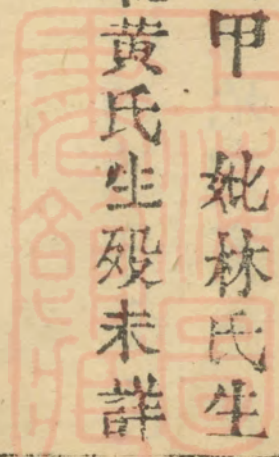 甲 妣林氏生
黄氏生殁未詳